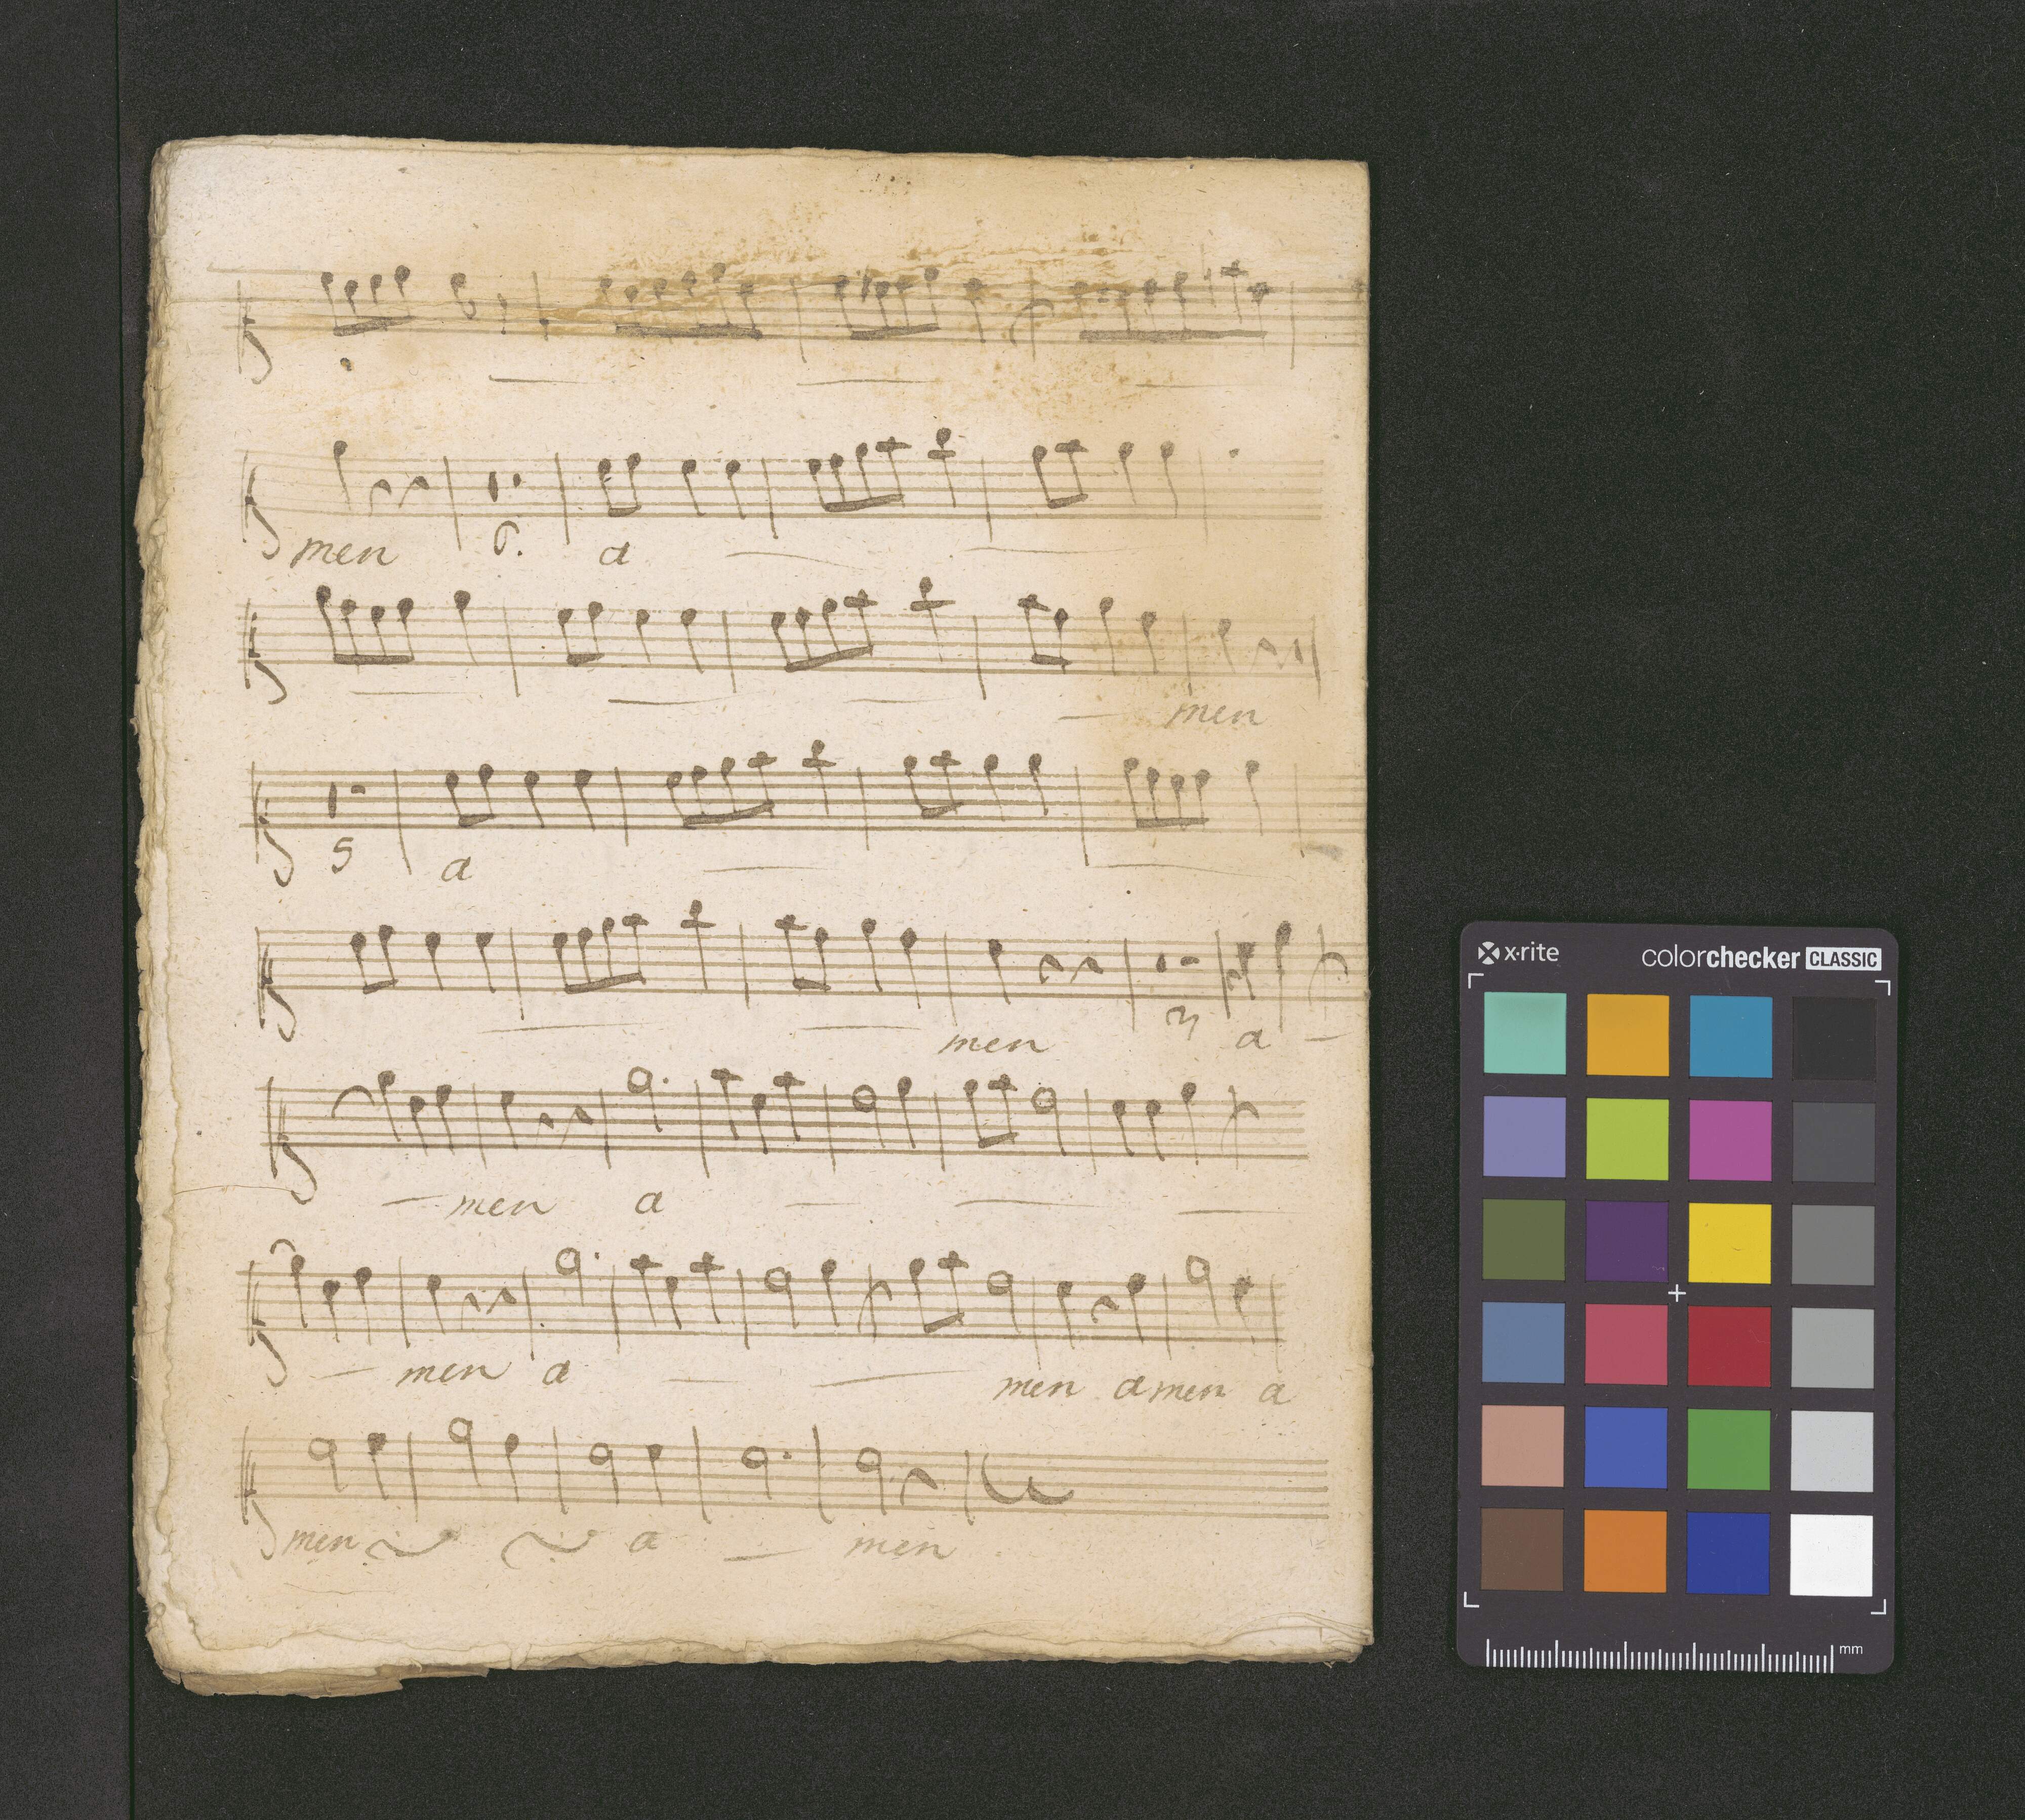 men 6. a
men
5 a
men 3 a
men a
men a men amen a
men a men
x·rite colorchecker CLASSIC
mm